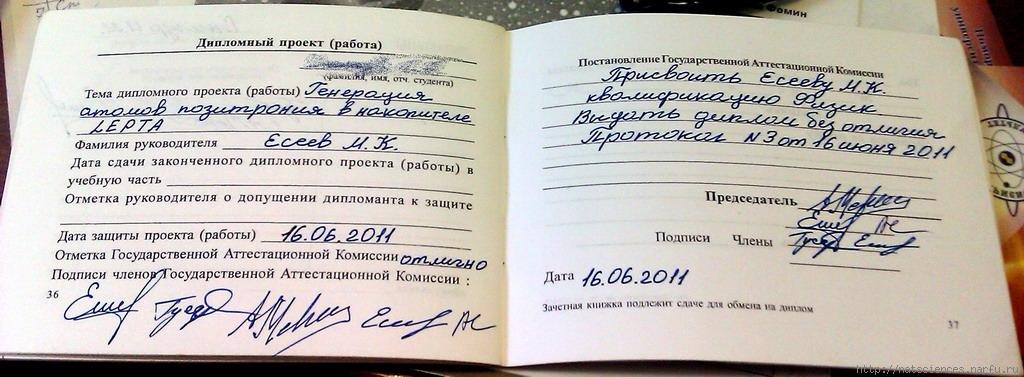 Фомин
Дипломный проект (работа)
(фамилия, имя, отч. студента)
Тема дипломного проекта (работы) Генерация
атомов позитрония в накопителе
LEPTA
Фамилия руководителя Есеев М.К.
Дата сдачи законченного дипломного проекта (работы) в
учебную часть
Отметка руководителя о допущении дипломанта к защите
Дата защиты проекта (работы) 16.06.2011
Отметка Государственной Аттестационной Комиссии отлично
Подписи членов Государственной Аттестационной Комиссии :
36
Постановление Государственной Аттестационной Комиссии
Присвоить Есееву М.К.
квалификацию Физик
Выдать диплом без отличия
Протокол N3 от 16 июня 2011
Председатель
Подписи Члены
Дата 16.06.2011
Зачетная книжка подлежит сдаче для обмена на диплом
37
http://natsciences.narfu.ru